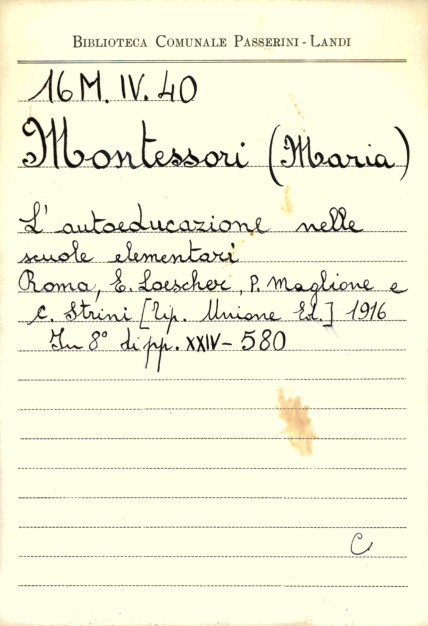 BIBLIOTECA COMUNALE PASSERINI - LANDI
16 M. IV. 40
Montessori (Maria)
L' autoeducazione nelle
scuole elementari
Roma, E. Loescher, P. Maglione e
C. Strini [Tip. Unione Ed.] 1916
In 8° di pp. XXIV - 580
C